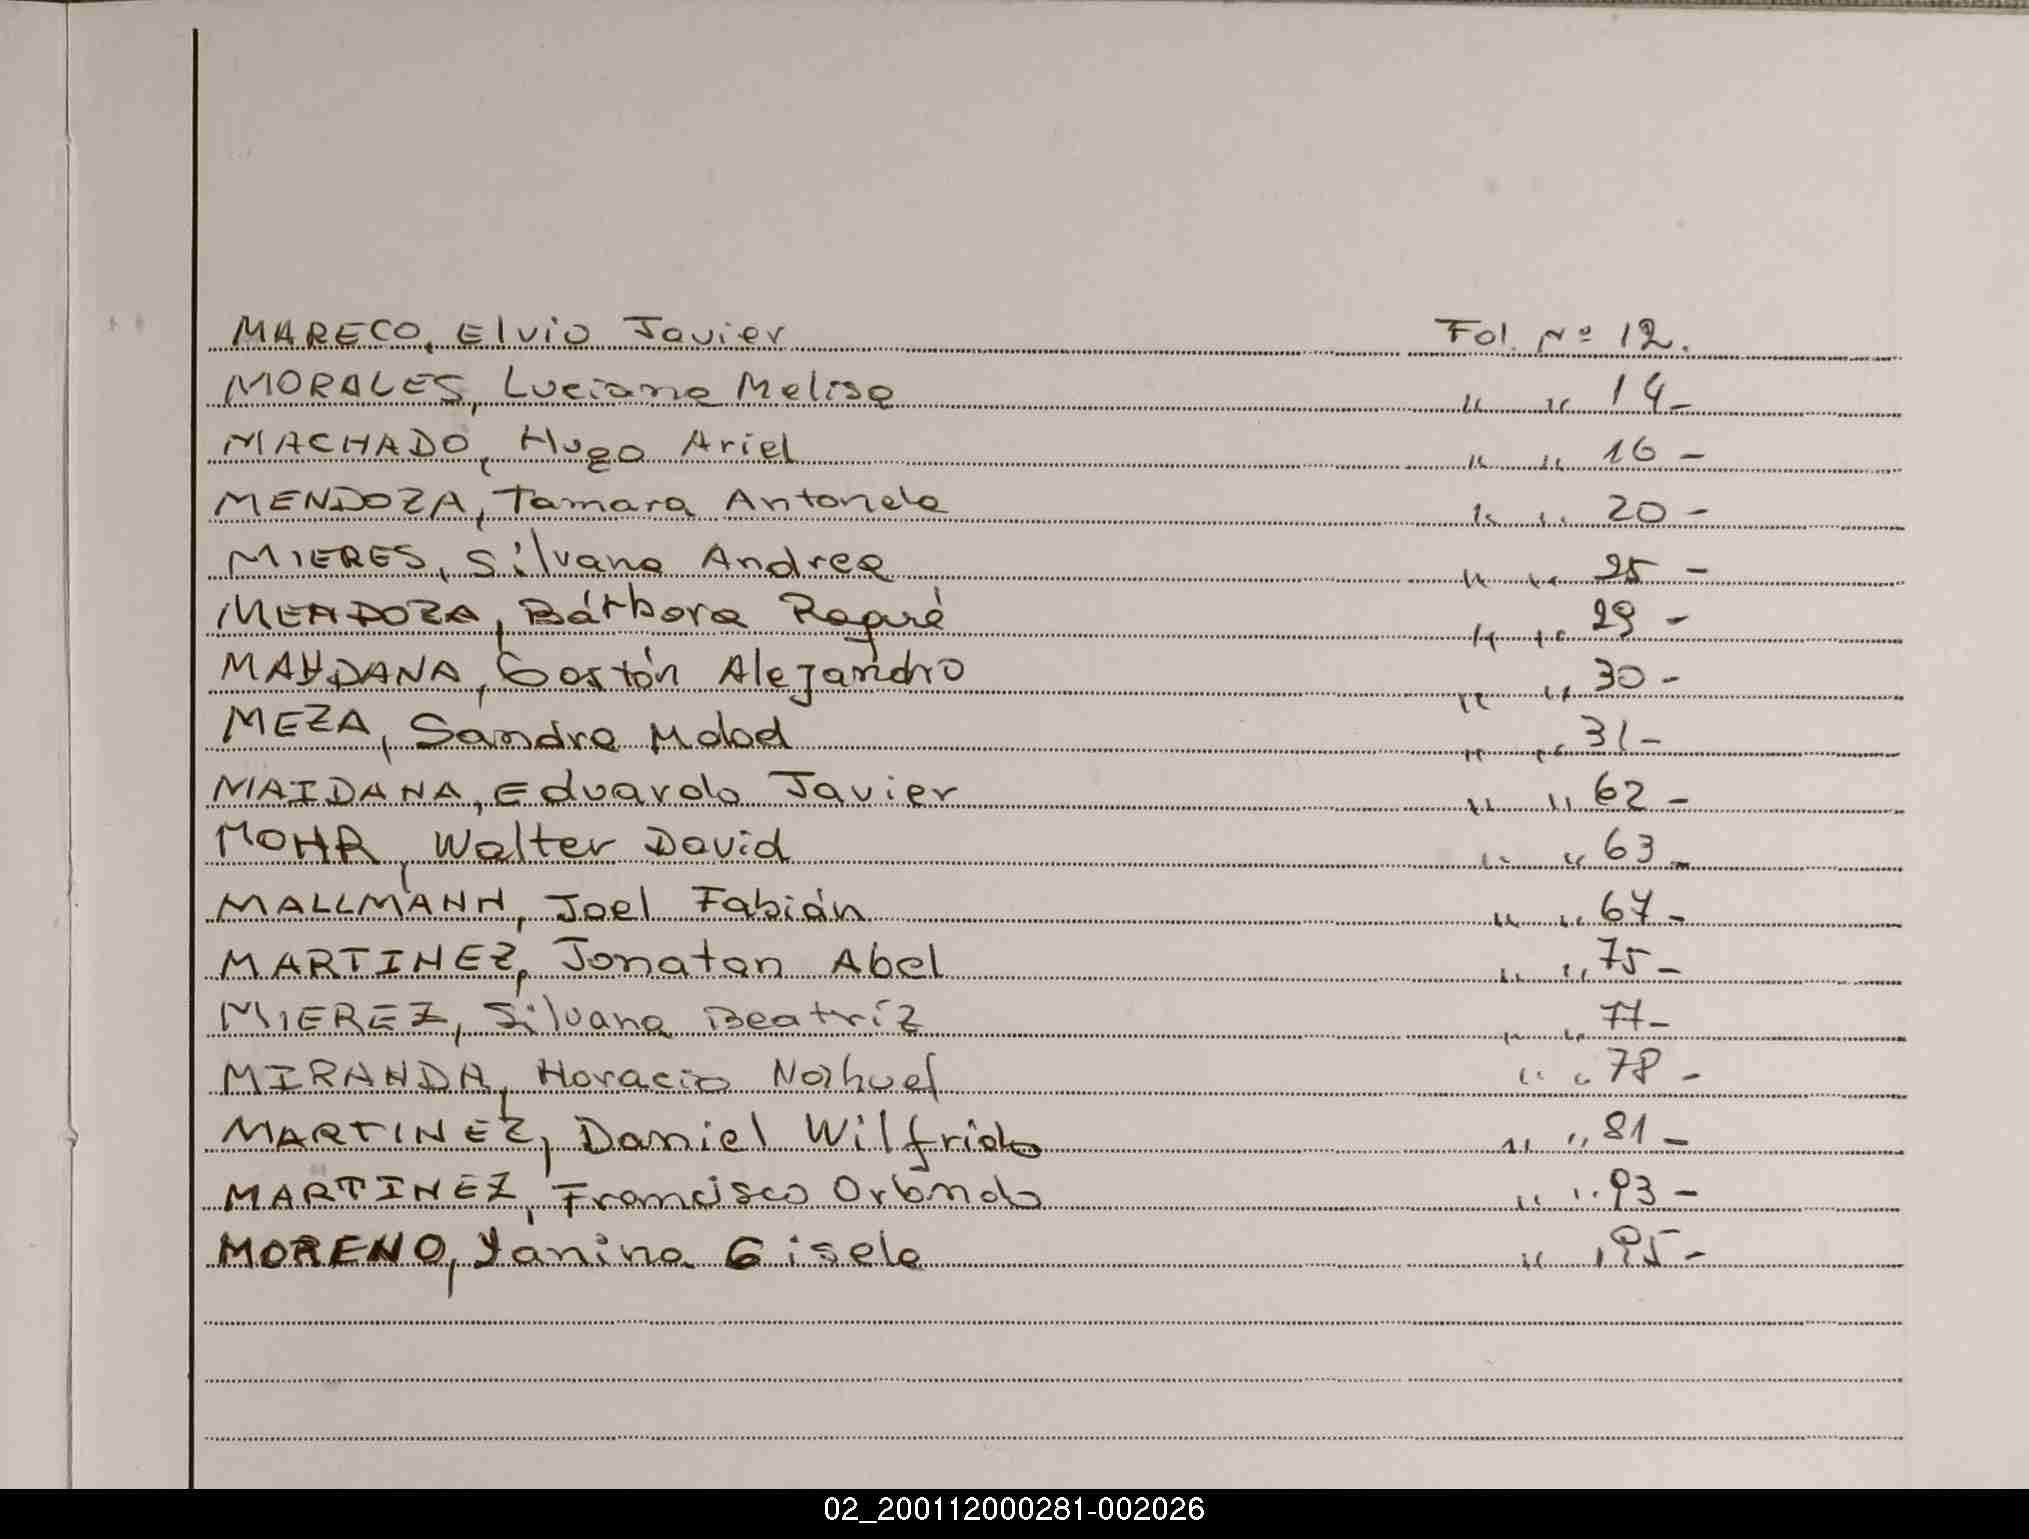 MARECO, Elvio Javier Fol. Nº 12.
MORALES, Luciana Melisa " " 14-
MACHADO, Hugo Ariel " " 16-
MENDOZA, Tamara Antonela " " 20-
MIERES, Silvana Andrea " " 25-
MENDOZA, Bárbara " " 29-
MAYDANA, Gastón Alejandro " " 30-
MEZA, Sandra " " 31-
MAIDANA, Eduardo Javier " " 62-
MOHR, Walter David " " 63-
MALLMANN, Joel Fabián " " 67-
MARTINEZ, Jonatan Abel " " 75-
MIEREZ, Silvana Beatríz " " 77-
MIRANDA, Horacio Nahuel " " 78-
MARTINEZ, Daniel Wilfrido " " 81-
MARTINEZ, Francisco Orlando " " 93-
MORENO, Yanina Gisela " " 95-
02_200112000281-002026